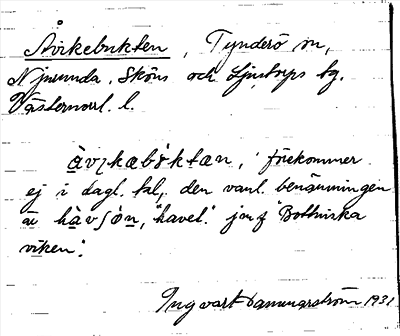 Åvikebukten, Tynderö sn,
Njurunda, Sköns och Ljustorps tg.
Västernorrl. l.
àvɩkabòktan, förekommer
ej i dagl. tal, den vanl. benämningen
är hàvʃön, "havet". jmf "Bottniska
viken".
Ingvart Hammarström 1931